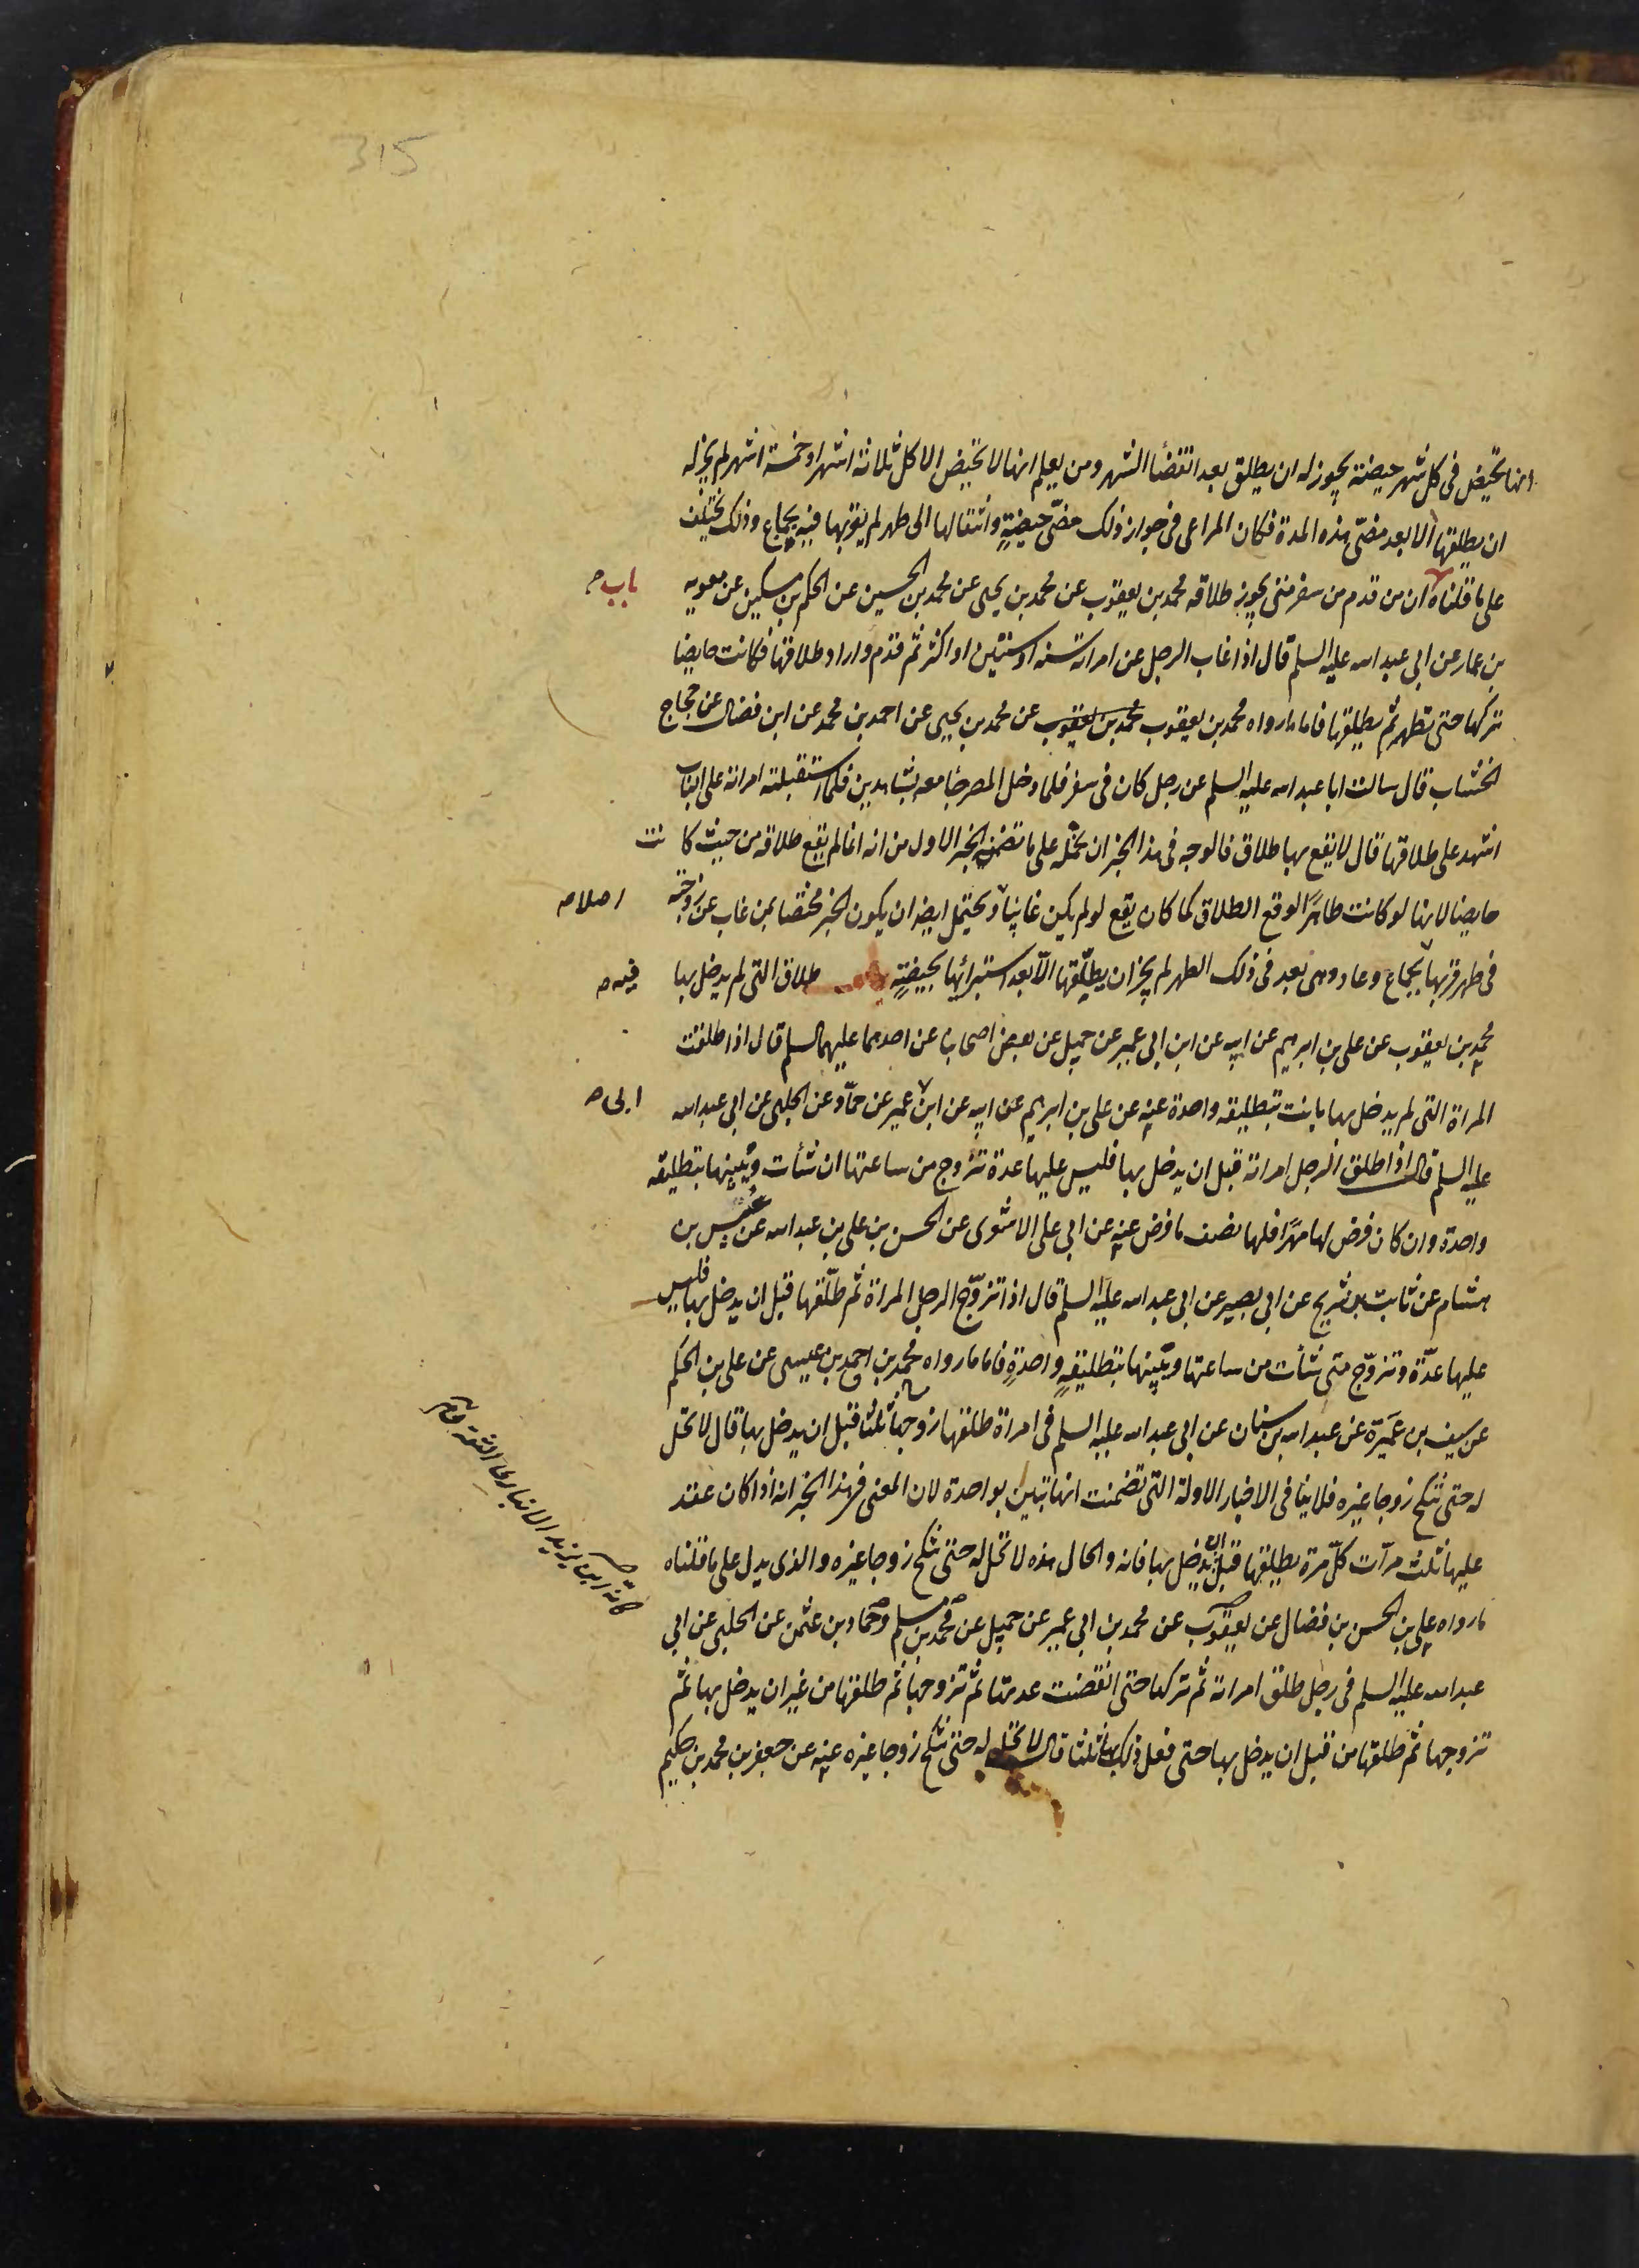 315
انها تحيض فى كل شهر حيضة يجوز له ان يطلق بعد انقضأ الشهر ومن يعلم انها لا تحيض الا كل ثلاثة اشهر او خمسة اشهر لم يجز له
ان يطلقها الا بعد مضىّ هذه المدة فكان المراعى فى جواز ذلك مضىّ حيضةٍ وانتقالها الى طهر لم يقربها فيه بجماع وذلك يختلف
على ما قلناه ان من قدم من سفر متى يجوز طلاقه محمد بن يعقوب عن محمد بن يحيى عن محمد بن الحسين عن الحكم بن مسكين عن معويه
باب
بن عمار عن ابى عبد الله عليه السلم قال اذا غاب الرجل عن امراته سنه او سنتين او اكثر ثم قدم واراد طلاقها فكانت حايضا
تركها حتى تطهر ثم يطلقها فاما ما رواه محمد بن يعقوب محمد بن يعقوب عن محمد بن يحيى عن احمد بن محمد عن ابن فضال عن حجاج
الخشاب قال سالت ابا عبد الله عليه السلم عن رجل كان فى سفر فلما دخل المصر جأ معه بشاهدين فلما استقبلته امراته على الباب
اشهد على طلاقها قال لا يقع بها طلاق فالوجه فى هذا الخبر ان نحمله على ما تضمنه الخبر الاول من انه انما لم يقع طلاقه من حيث كانت
حايضا لانها لو كانت طاهرًا لوقع الطلاق كما كان يقع لو لم يكن غايبًا ويحتمل ايضا ان يكون الخبر مختصا بمن غاب عن زوجته
اصلا
فى طهر قربها بجماع وعاد وهى بعد فى ذلك الطهر لم يجز ان يطلّقها الّا بعد استبرائها بحيضةٍ طلاق التى لم يدخل بها
فيه
محمد بن يعقوب عن على بن ابرهيم عن ابيه عن ابن ابى عمير عن جميل عن بعض اصحابنا عن احدهما عليهما السلم قال اذا طلقت
المراة التى لم يدخل بها بانت بتطليقه واحدة عنه عن على بن ابرهيم عن ابيه عن ابن عمير عن حمّاد عن الحلبى عن ابى عبد الله
ابى
عليه السلم قال اذا طلق الرجل امراته قبل ان يدخل بها فليس عليها عدة تزوج من ساعتها ان شأت ويبينها بتطليقه
واحدة وان كان فرض لها مهرًا فلها نصف ما فرض عنه عن ابى على الاشعرى عن الحسن بن على بن عبد الله عن عبيس بن
هشام عن ثابت بن شريح عن ابى بصير عن ابى عبد الله عليه السلم قال اذا تزوّج الرجل المراة ثم طلّقها قبل ان يدخل بها فليس
عليها عدّة وتزوّج متى شأت من ساعتها ويبينها بتطليقةٍ واحدةٍ فاما ما رواه محمد بن احمد بن عيسى عن على بن الحكم
عن سيف بن عميرة عن عبد الله بن سنان عن ابى عبد الله عليه السلم فى امراة طلقها زوجها ثلثًا قبل ان يدخل بها قال لا تحل
له حتى تنكح زوجا غيره فلا ينافى الاخبار الاولة التى تضمنت انها تبين بواحدة لان المعنى فى هذا الخبر انه اذا كان عقد
عليها ثلث مرآت كلّ مرة يطلقها قبل ان يدخل بها فانه والحال هذه لا تحل له حتى تنكح زوجا غيره والذى يدل على ما قلناه
ما رواه على بن الحسن بن فضال عن يعقوب عن محمد بن ابى عمير عن جميل عن محمد بن مسلم وحماد بن عثمن عن الحلبى عن ابى
عبد الله عليه السلم فى رجل طلق امراته ثم تركها حتى انقضت عدتها ثم تزوجها ثم طلقها من غير ان يدخل بها ثم
تزوجها ثم طلقها من قبل ان يدخل بها حتى فعل ذلك بها ثلثا قال لا تحل له حتى تنكح زوجا غيره عنه عن جعفر بن محمد بن حكيم
كانه ابن يزيد الانبارى الثقة